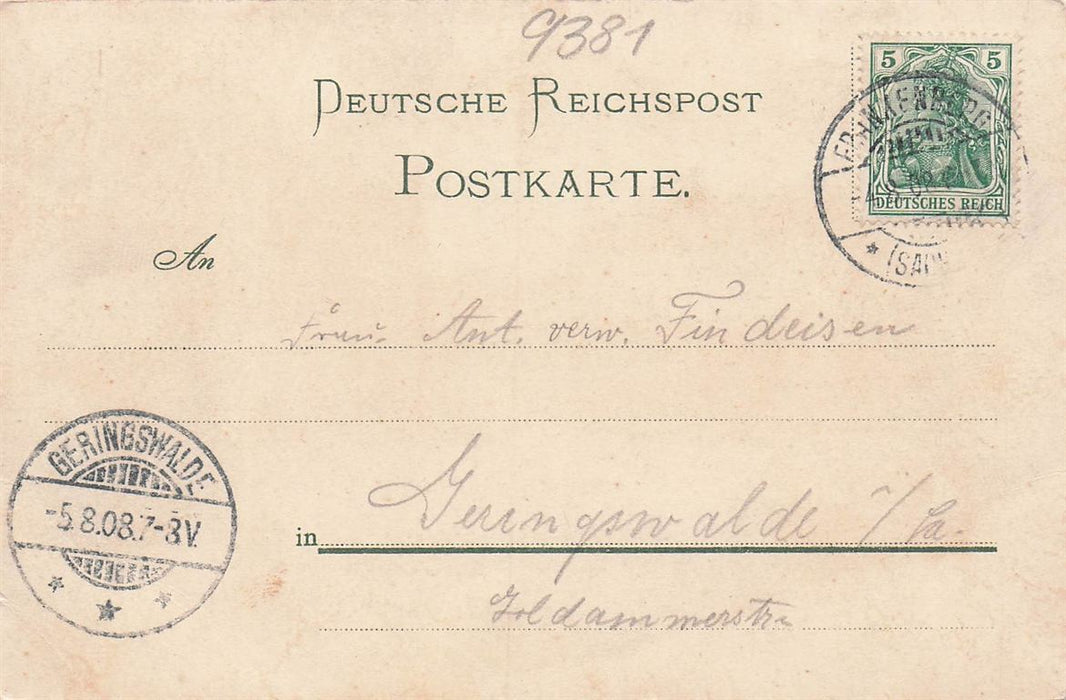 9381
DEUTSCHE REICHSPOST
POSTKARTE.
5 5
DEUTSCHES REICH
FRANKENBERG
An
Frau. Ant. verw. Findeisen
GERINGSWALDE
-5.8.08.7-8V.
in Geringswalde i/Sa.